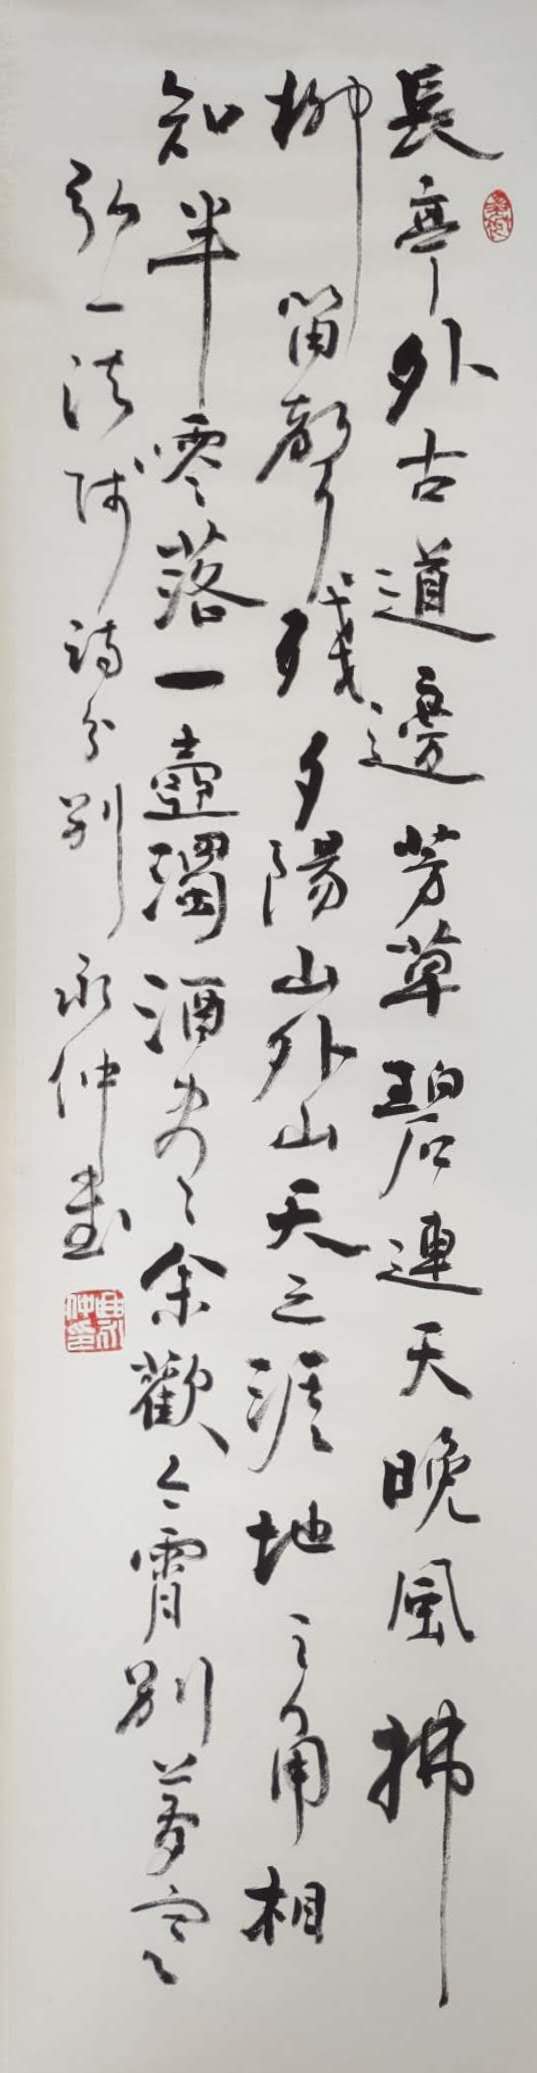 長亭外古道邊芳草碧連天晚風拂
柳笛聲殘夕陽山外山天之涯地之角相
知半零落一壺濁酒盡余歡今霄別夢寒
弘一法师詩分别 永仲書